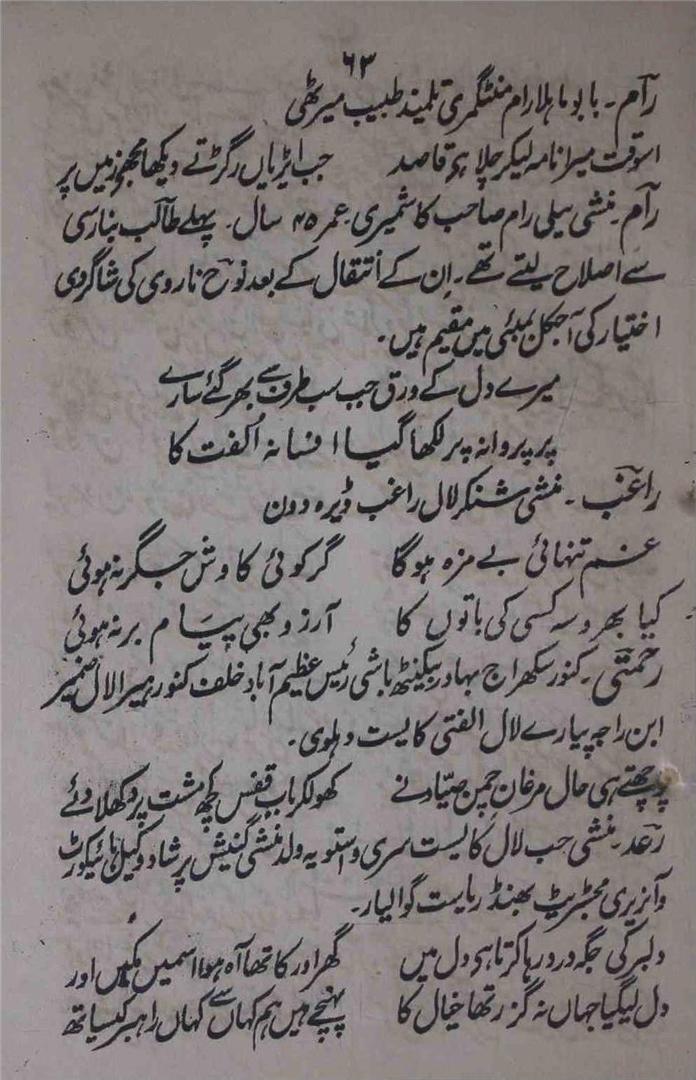 ۶۳
رام۔ بابو ماہلا رام منٹگمری تلمیذ طبیب میرٹھی
اسوقت میرا نامہ لیکر چلا ہے قاصد جب ایڑیاں رگڑتے دیکھا مجھے زمیں پر
رام۔ منشی سیلی رام صاحب کاشمیری عمر ۴۵ سال۔ پہلے طالب بنارسی
سے اصلاح لیتے تھے۔ ان کے انتقال کے بعد نوح ناروی کی شاگردی
اختیار کی آجکل بمبئی میں مقیم ہیں۔
میرے دل کے ورق جب سب طرف سے بھر گئے سارے
پر پروانہ پر لکھا گیا افسانہ اُلفت کا
راغب۔ منشی شنکر لال راغب ڈیرہ دون
غم تنہائی بے مزہ ہوگا گر کوئی کاوش جگر نہ ہوئی
کیا بھروسہ کسی کی باتوں کا آرزو بھی پیام بر نہ ہوئی
رحمتی۔ کنور سکھراج بہادر بیکنٹھ باشی رئیس عظیم آباد خلف کنور ہیرا لال ضمیر
ابن راجہ پیارے لال الفتی کایست دہلوی۔
پوچھتے ہی حال مرغان چمن صیّاد نے کھولکر باب قفس کچھ مشت پر دکھلا دئے
رعد۔ منشی حب لال کایست سری واستویہ ولد منشی گنیش پرشاد وکیل ہائیکورٹ
و آنریری مجسٹریٹ بھنڈ ریاست گوالیار۔
دلبر کی جگہ درد رہا کرتا ہے دل میں گھر اور کا تھا آہ ہوا اسمیں مکیں اور
دل لیگیا جہاں نہ گزر تھا خیال کا پہنچے ہیں ہم کہاں سے کہاں راہبر کیساتھ